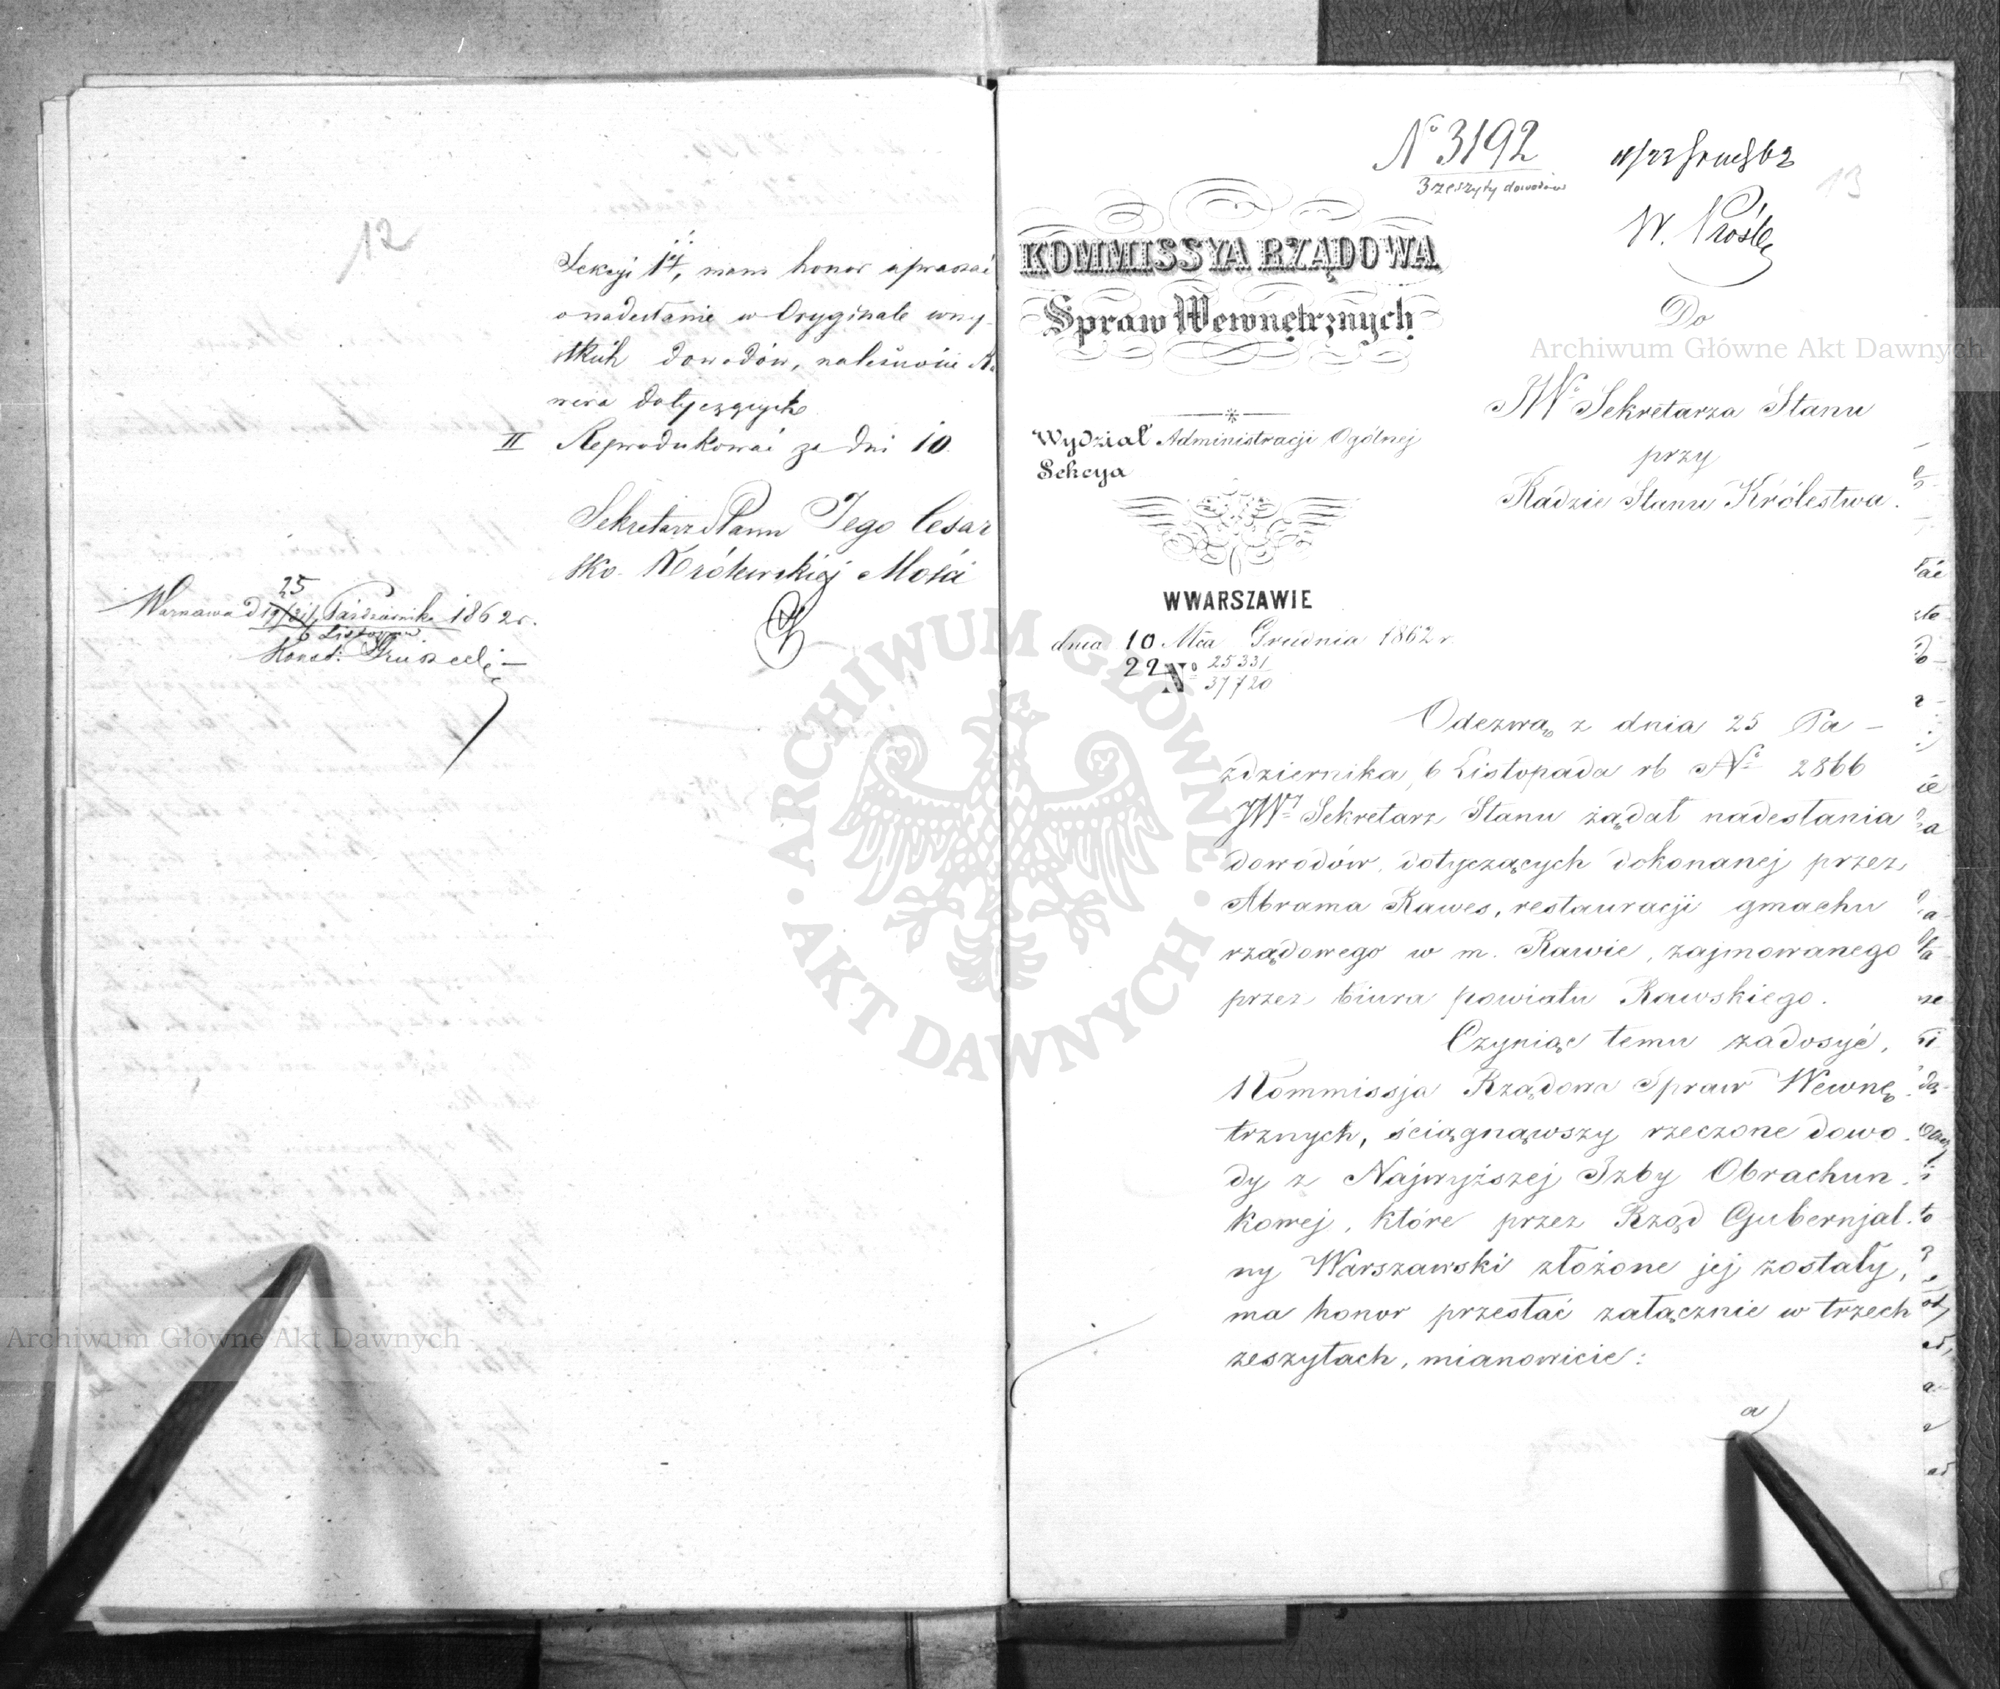 12
Sekcyi 1ej, mam honor upraszać
o nadesłanie w Oryginale wszy-
stkich dowodów, należności Ra-
wesa dotyczących
II Reprodukować za dni 10.
Sekretarz Stanu Jego Cesar
sko. Królewskiej Mości
25
Warszawa d 19/31 Października 1862 r.
6 Listopada
13
No 3192
3 zeszyty dowodów
KOMMISSYA RZĄDOWA
Spraw Wewnętrznych
Wydział Administracji Ogólnej
Sekcya
W WARSZAWIE
dnia 10 Mca Grudnia 1862 r.
22
No 25331
37720
Do
JWo Sekretarza Stanu
przy
Radzie Stanu Królestwa.
Odezwą z dnia 25 Pa-
ździernika, 6 Listopada rb No 2866
JWy Sekretarz Stanu żądał nadesłania
dowodów, dotyczących dokonanej przez
Abrama Rawes, restauracji gmachu
rządowego w m. Rawie, zajmowanego
przez biura powiatu Rawskiego.
Czyniąc temu zadosyć,
Kommissja Rządowa Spraw Wewnę-
trznych, ściągnąwszy rzeczone dowo-
dy z Najwyższej Izby Obrachun-
kowej, które przez Rząd Gubernjal-
ny Warszawski złożone jej zostały,
ma honor przesłać załącznie w trzech
zeszytach, mianowicie:
a)
Archiwum Główne Akt Dawnych
Archiwum Główne Akt Dawnych
ARCHIWUM GŁÓWNE · AKT DAWNYCH ·